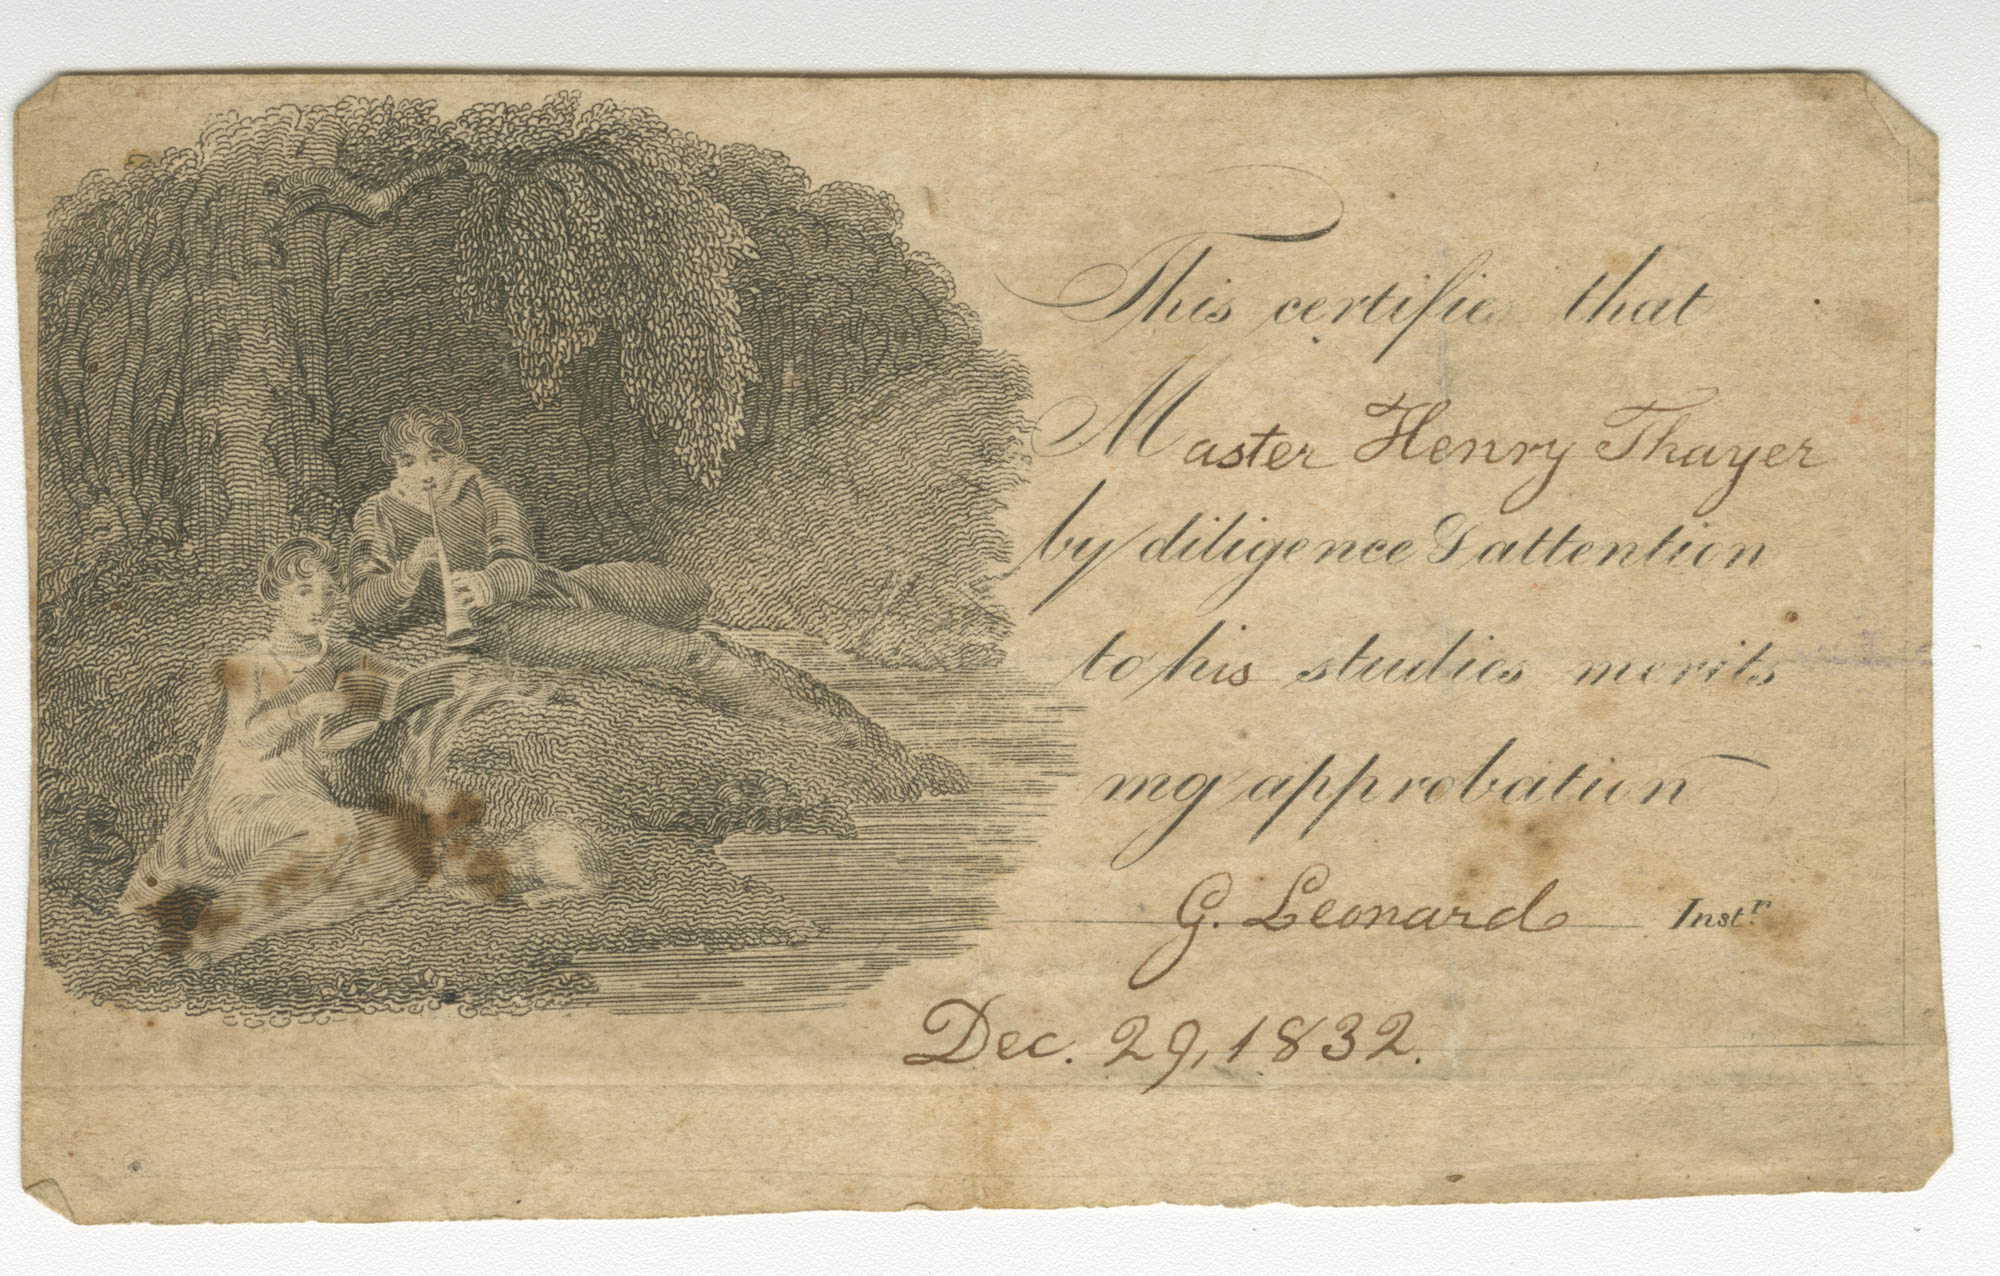 This certifies that
Master Henry Thayer
by diligence & attention
to his studies merits
my approbation
G. Leonard Instr.
Dec. 29, 1832.